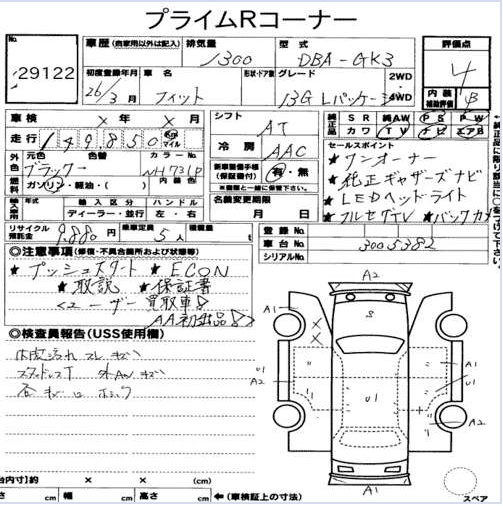 プライムRコーナー
No. 29122
車歴 (自家用以外は記入)
排気量 1300
型式 DBA-GK3
評価点 4
初度登録年月 26/3月
車名 フィット
形状・ドア数
グレード 13G Lパッケージ
2WD
4WD
内装補助評価 B
車検 × 年 × 月
走行 149,850 Km マイル
シフト AT
冷房 AAC
純正品 SR 純AW PS PW
カワ TV ナビ エアB
セールスポイント
★ワンオーナー
★純正ギャザーズナビ
★LEDヘッドライト
★フルセグTV ★バックカメ
★純正品に限り部品に○をつけて下さい。
外色 元色 色替 カラーNo.
ブラック NH731P
ガソリン・軽油・( ) 内装色
新車整備手帳(保証書付) 有・無
※書類と一緒に保管下さい。
輸入車 年式 輸入区分 ハンドル
ディーラー・並行 左・右
名義変更期限
月 日
リサイクル預託金 9,880円
乗車定員 5人
積載量 t
登録No.
車台No. 3005382
シリアルNo.
◎注意事項(修復・不具合箇所および状態等)
★プッシュスタート ★ECON
★取説 ★保証書
<ユーザー買取車!
AA初出品!>
◎検査員報告(USS使用欄)
内装汚れ スレ キズ
スタッドレスT 外AW キズ
A2
A1
S
U1
A2
U1
U1
A2
A1
スペア
台内寸)約 × × (cm)
さ cm 幅 cm 高さ cm ←(車検証上の寸法)